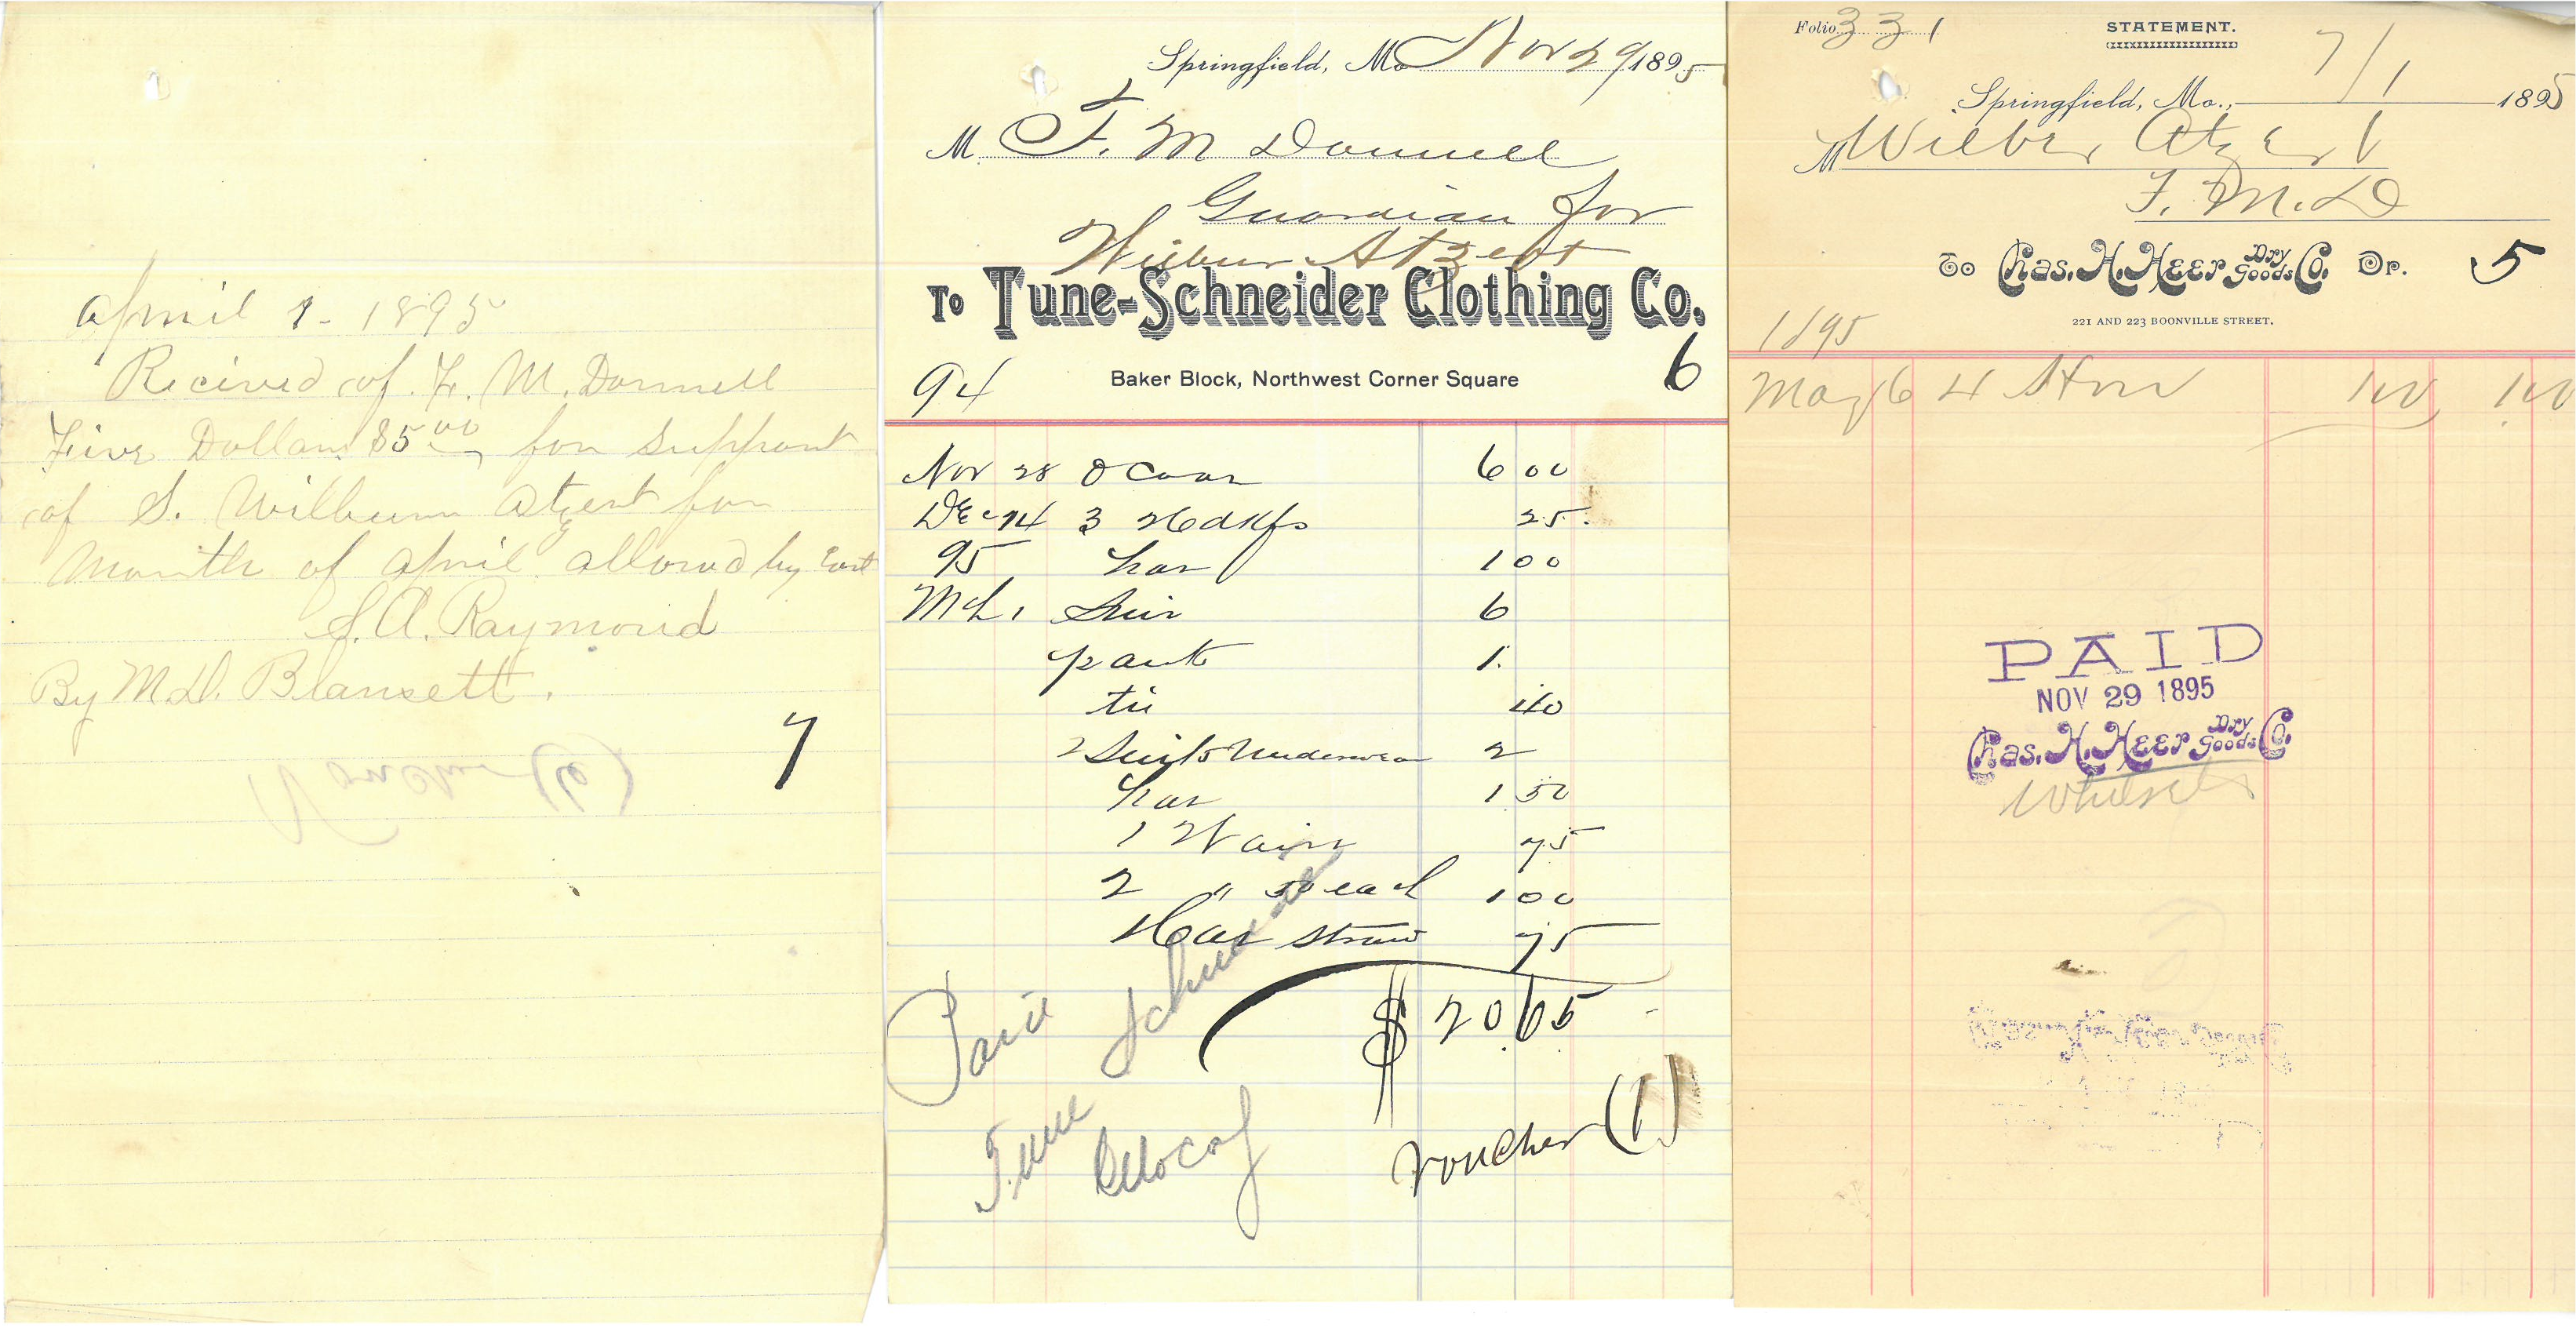 April 1 - 1895
Recived of F. M. Donnell
Five Dollars $5.00 for support
of S. Wilburn Atzert for
Month of April allowed by Cort
S. A. Raymond
By M. D. Blansett.
7
Voucher (6)
Springfield, Mo Nov 29 1895
M F. M Donnell
Guardian for
Wilbur Atzert
To Tune-Schneider Clothing Co.
94 Baker Block, Northwest Corner Square 6
Nov 28 O Coat 6 00
Dec 14 3 Hdkfs 25
95 hat 1 00
Mch 1 Suit 6
pant 1.
tie 40
2 Suits Underwear 2
hat 1 50
1 Waist 75
2 " 50 each 1 00
Hat straw 75
$ 20.65
Paid
Tune Schneider
Clo Co
Voucher (1)
Folio 331 STATEMENT.
Springfield, Mo., 7/1 1895
M Wilber Atzert
F. M. D
To Chas. H. Heer Dry Goods Co. Dr. 5
221 AND 223 BOONVILLE STREET.
1895
May 16 4 100 100
PAID
NOV 29 1895
Chas. H. Heer Dry Goods Co.